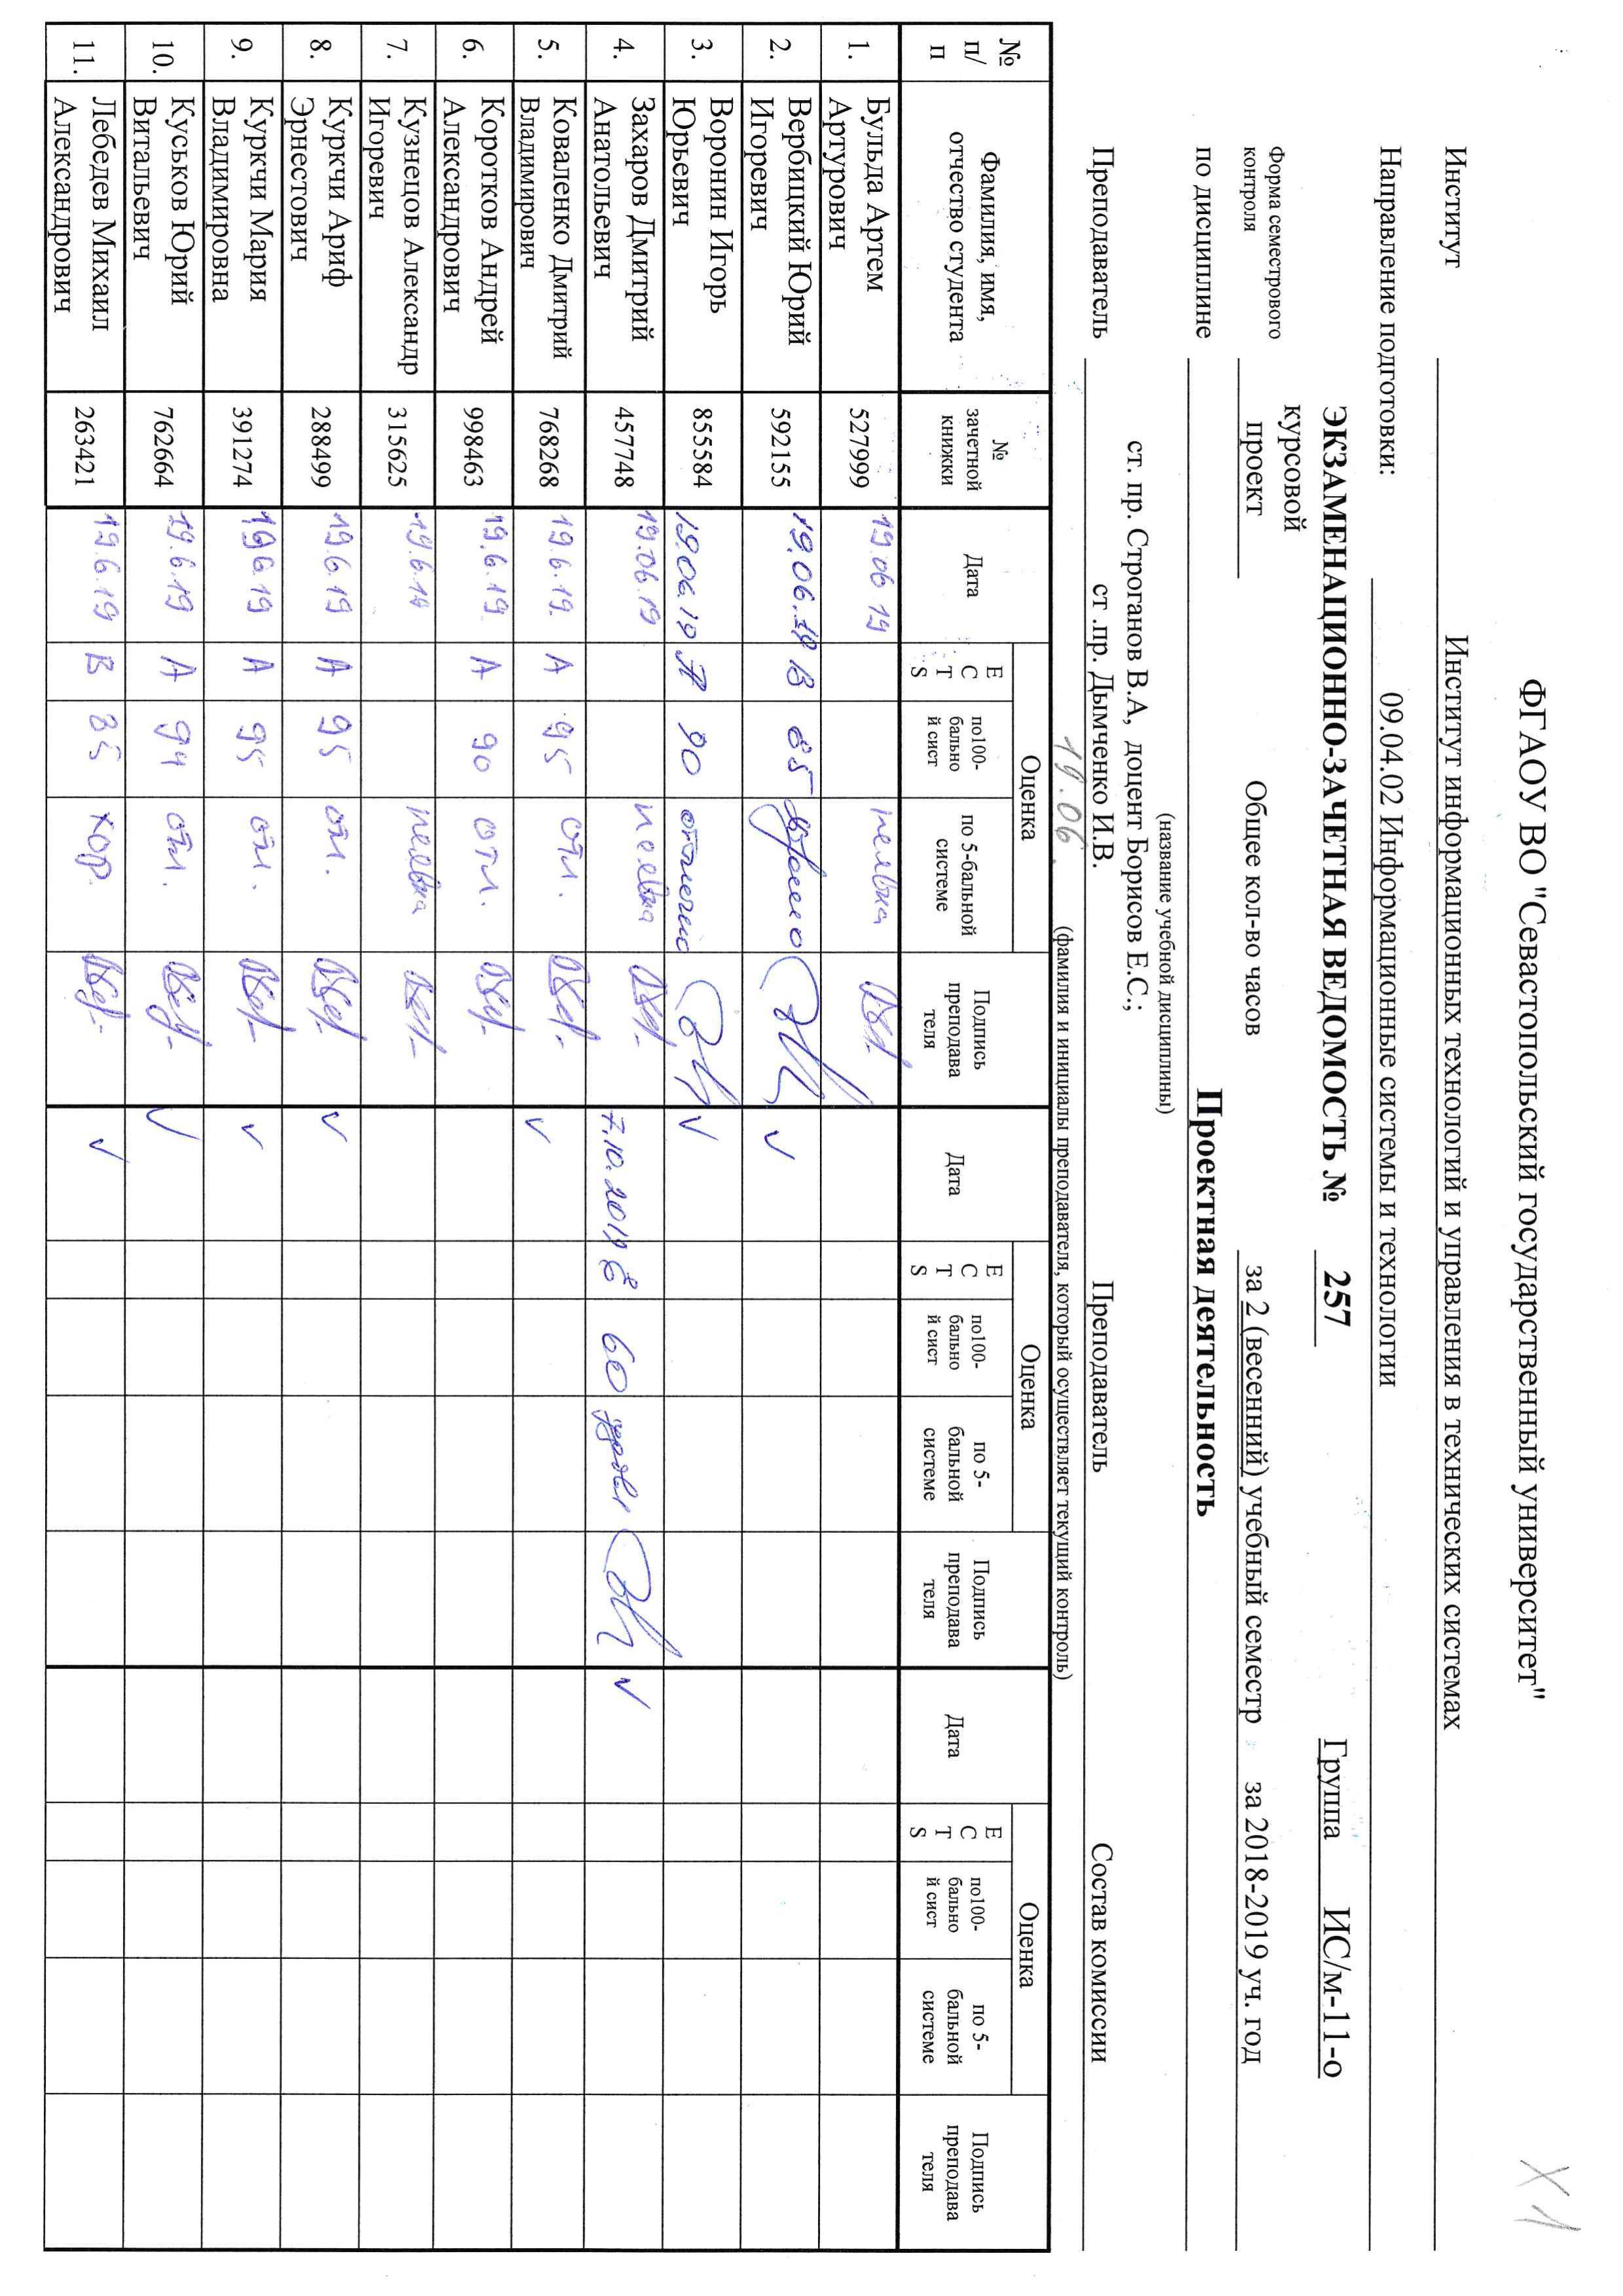 Х1
ФГАОУ ВО "Севастопольский государственный университет"
Институт Институт информационных технологий и управления в технических системах
Направление подготовки: 09.04.02 Информационные системы и технологии
ЭКЗАМЕНАЦИОННО-ЗАЧЕТНАЯ ВЕДОМОСТЬ № 257 Группа ИС/м-11-о
Форма семестрового контроля курсовой проект Общее кол-во часов за 2 (весенний) учебный семестр за 2018-2019 уч. год
по дисциплине Проектная деятельность
(название учебной дисциплины)
ст. пр. Строганов В.А, доцент Борисов Е.С.;
Преподаватель ст .пр. Дымченко И.В. Преподаватель Состав комиссии
19.06. (фамилия и инициалы преподавателя, который осуществляет текущий контроль)
№ п/п Фамилия, имя, отчество студента № зачетной книжки Дата Оценка ECTS по100-бально й сист по 5-бальной системе Подпись преподава теля Дата Оценка ECTS по100-бально й сист по 5-бальной системе Подпись преподава теля Дата Оценка ECTS по100-бально й сист по 5-бальной системе Подпись преподава теля
1. Бульда Артем Артурович 527999 19.06 19 неявка
2. Вербицкий Юрий Игоревич 592155 19.06.19 B 85 хорошо
3. Воронин Игорь Юрьевич 855584 19.06.19 A 90 отлично
4. Захаров Дмитрий Анатольевич 457748 19.06.19 неявка 7.10.2019 E 60 удовл
5. Коваленко Дмитрий Владимирович 768268 19.6.19. A 95 отл.
6. Коротков Андрей Александрович 998463 19.6.19 A 90 отл.
7. Кузнецов Александр Игоревич 315625 19.6.19 неявка
8. Куркчи Ариф Эрнестович 288499 19.6.19 A 95 отл.
9. Куркчи Мария Владимировна 391274 19.6.19 A 95 отл.
10. Куськов Юрий Витальевич 762664 19.6.19 A 94 отл.
11. Лебедев Михаил Александрович 263421 19.6.19 B 85 хор.